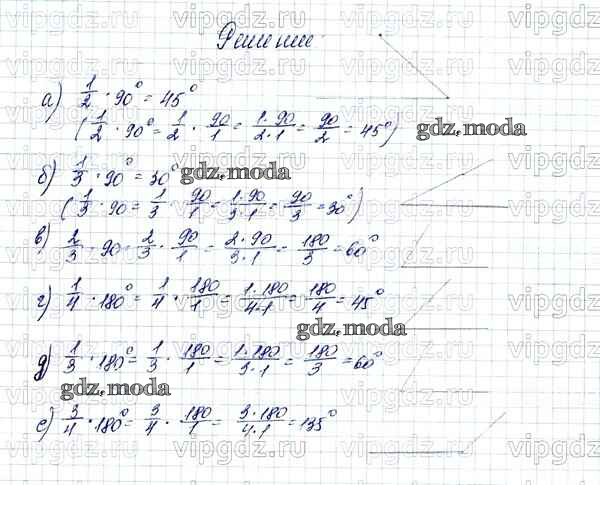 Решение
а) 1/2 · 90° = 45°
(1/2 · 90° = 1/2 · 90/1 = 1·90/2·1 = 90/2 = 45°)
gdz.moda
б) 1/3 · 90° = 30°
gdz.moda
(1/3 · 90 = 1/3 · 90/1 = 1·90/3·1 = 90/3 = 30°)
в) 2/3 · 90 = 2/3 · 90/1 = 2·90/3·1 = 180/3 = 60°
г) 1/4 · 180° = 1/4 · 180/1 = 1·180/4·1 = 180/4 = 45°
gdz.moda
д) 1/3 · 180° = 1/3 · 180/1 = 1·180/3·1 = 180/3 = 60°
gdz.moda
е) 3/4 · 180° = 3/4 · 180/1 = 3·180/4·1 = 135°
vipgdz.ru